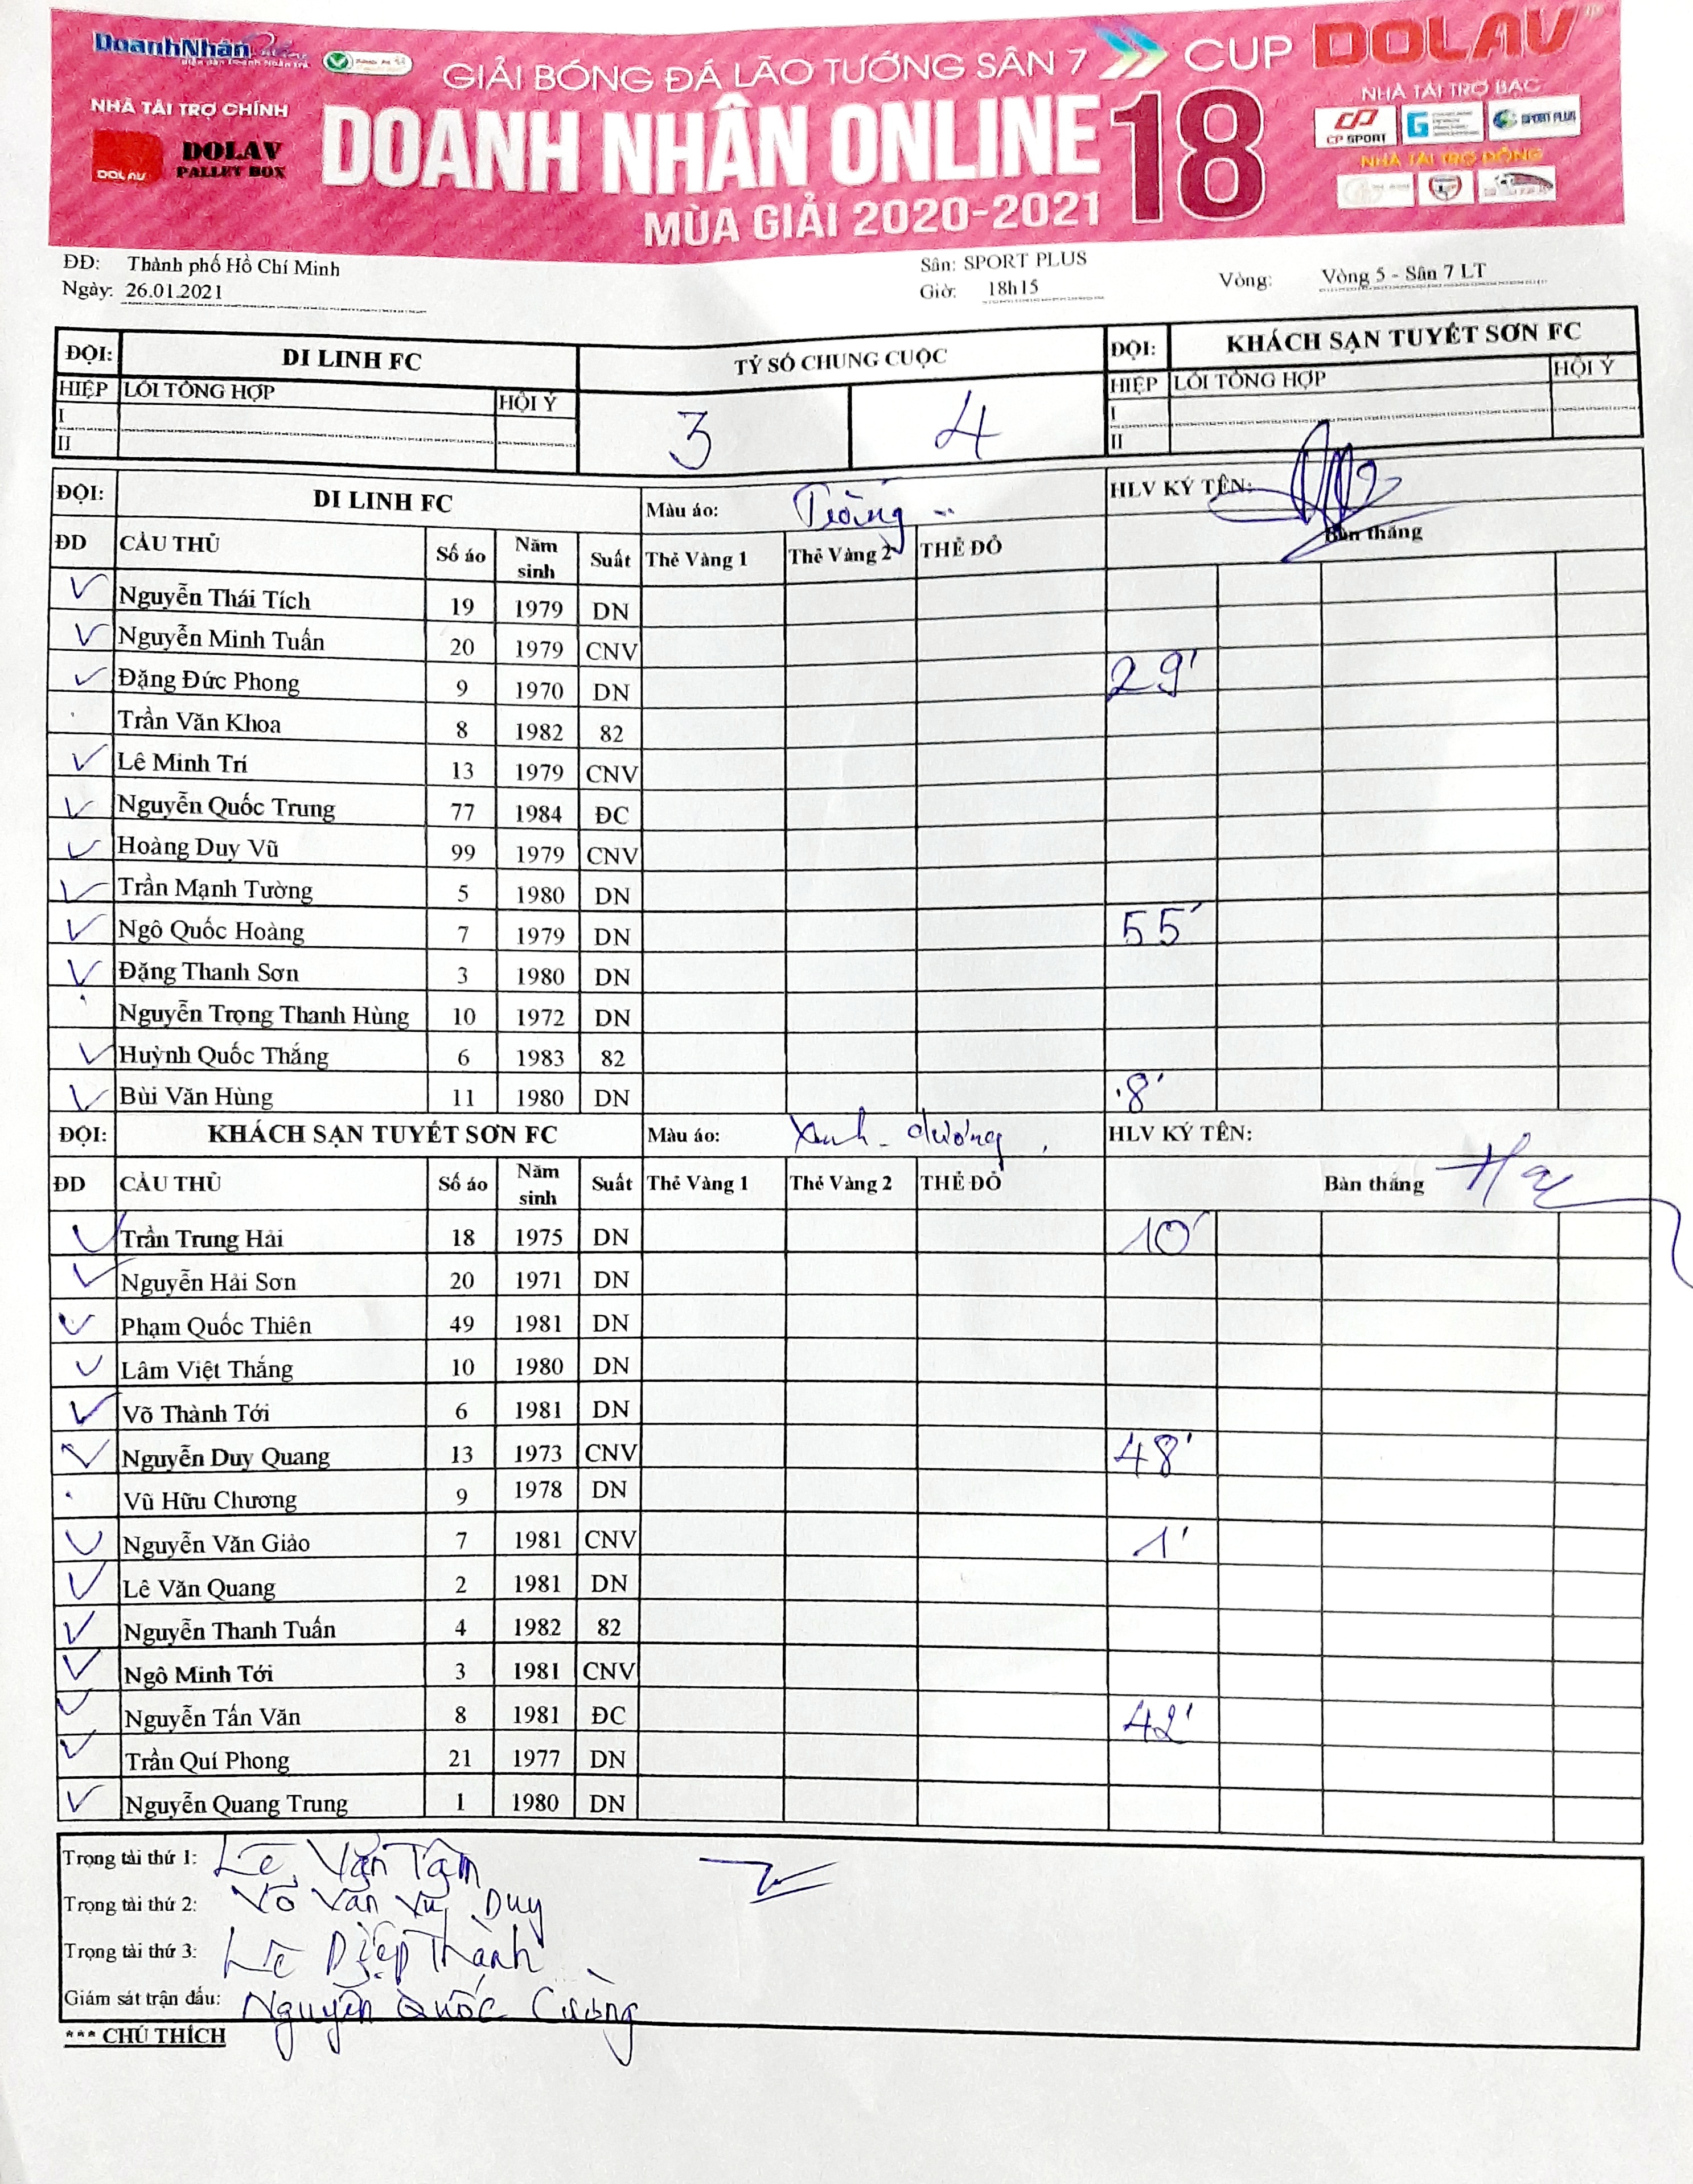 DoanhNhân
NHÀ TÀI TRỢ CHÍNH
DOLAV
DOLAV
PALLET BOX
GIẢI BÓNG ĐÁ LÃO TƯỚNG SÂN 7
CUP DOLAV
DOANH NHÂN ONLINE 18
MÙA GIẢI 2020-2021
NHÀ TÀI TRỢ BẠC
CP SPORT
SPORT PLUS
NHÀ TÀI TRỢ ĐỒNG
ĐĐ: Thành phố Hồ Chí Minh Sân: SPORT PLUS
Ngày: 26.01.2021 Giờ: 18h15 Vòng: Vòng 5 - Sân 7 LT
ĐỘI: DI LINH FC TỶ SỐ CHUNG CUỘC ĐỘI: KHÁCH SẠN TUYẾT SƠN FC
HIỆP LỖI TỔNG HỢP HỘI Ý 3 4 HIỆP LỖI TỔNG HỢP HỘI Ý
I I
II II
ĐỘI: DI LINH FC Màu áo: Trắng HLV KÝ TÊN:
ĐD CẦU THỦ Số áo Năm sinh Suất Thẻ Vàng 1 Thẻ Vàng 2 THẺ ĐỎ Bàn thắng
Nguyễn Thái Tích 19 1979 DN
Nguyễn Minh Tuấn 20 1979 CNV
Đặng Đức Phong 9 1970 DN 29'
Trần Văn Khoa 8 1982 82
Lê Minh Trí 13 1979 CNV
Nguyễn Quốc Trung 77 1984 ĐC
Hoàng Duy Vũ 99 1979 CNV
Trần Mạnh Tường 5 1980 DN
Ngô Quốc Hoàng 7 1979 DN 55'
Đặng Thanh Sơn 3 1980 DN
Nguyễn Trọng Thanh Hùng 10 1972 DN
Huỳnh Quốc Thắng 6 1983 82
Bùi Văn Hùng 11 1980 DN 8'
ĐỘI: KHÁCH SẠN TUYẾT SƠN FC Màu áo: Xanh - dương HLV KÝ TÊN:
ĐD CẦU THỦ Số áo Năm sinh Suất Thẻ Vàng 1 Thẻ Vàng 2 THẺ ĐỎ Bàn thắng
Trần Trung Hải 18 1975 DN 10'
Nguyễn Hải Sơn 20 1971 DN
Phạm Quốc Thiên 49 1981 DN
Lâm Việt Thắng 10 1980 DN
Võ Thành Tới 6 1981 DN
Nguyễn Duy Quang 13 1973 CNV 48'
Vũ Hữu Chương 9 1978 DN
Nguyễn Văn Giảo 7 1981 CNV 1'
Lê Văn Quang 2 1981 DN
Nguyễn Thanh Tuấn 4 1982 82
Ngô Minh Tới 3 1981 CNV
Nguyễn Tấn Văn 8 1981 ĐC 42'
Trần Quí Phong 21 1977 DN
Nguyễn Quang Trung 1 1980 DN
Trọng tài thứ 1: Lê Văn Tâm
Trọng tài thứ 2: Võ Văn Vũ Duy
Trọng tài thứ 3: Lê Diệp Thành
Giám sát trận đấu: Nguyễn Quốc Cường
*** CHÚ THÍCH